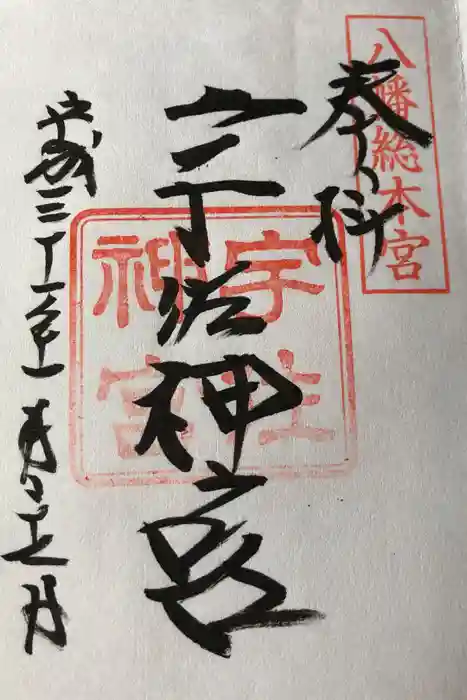 八幡総本宮
奉拝
宇佐神宮
宇佐
神宮
平成三十一年一月二十七日